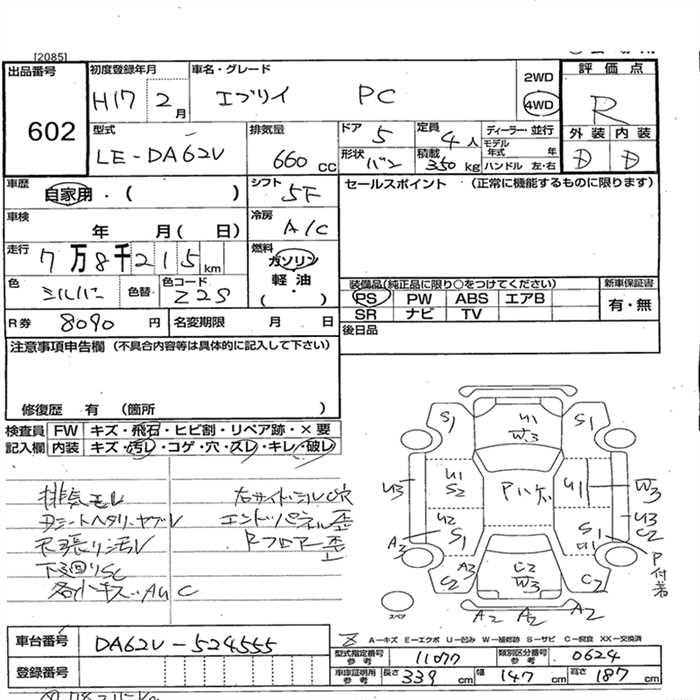 [2085]
出品番号
602
初度登録年月
H17 2月
車名・グレード
エブリイ PC
2WD
4WD
評価点
R
外装 内装
D D
型式
LE-DA62V
排気量
660cc
ドア 5
形状 バン
定員 4人
積載 350kg
ディーラー・並行
モデル年式 年
ハンドル 左・右
車歴 自家用・( )
シフト 5F
車検 年 月(日)
冷房 A/C
走行 7万8千215km
燃料 ガソリン
軽・油
( )
色 シルバー
色替
色コード Z2S
R券 8090円
名変期限 月 日
セールスポイント (正常に機能するものに限ります)
装備品(純正品に限り○をつけてください)
PS PW ABS エアB
SR ナビ TV
新車保証書
有・無
後日品
注意事項申告欄 (不具合内容等は具体的に記入して下さい)
修復歴 有 (箇所 )
検査員 FW キズ・飛石・ヒビ割・リペア跡・×要
記入欄 内装 キズ・汚レ・コゲ・穴・スレ・キレ・破レ
排気モレ
右サイドシル穴
エンドパネル歪
天張り汚レ
Fフロアー歪
下回りSC
各小キズ・AUC
S1 U1 S1
W3
U1 U1
S2
Pハゲ
U3 W3
U2
S1 S1 U3
C2
A3 U1
P付着
A3 C2
C2 W3 C2
A2 A2 A2
スペア
A-キズ E-エクボ U-凹み W-補修跡 S-サビ C-腐食 XX-交換済
車台番号 DA62V-524555
登録番号
型式指定番号
参考
11077
類別区分番号
参考
0624
車庫証明用
参考
長さ 339cm
幅 147cm
高さ 187cm